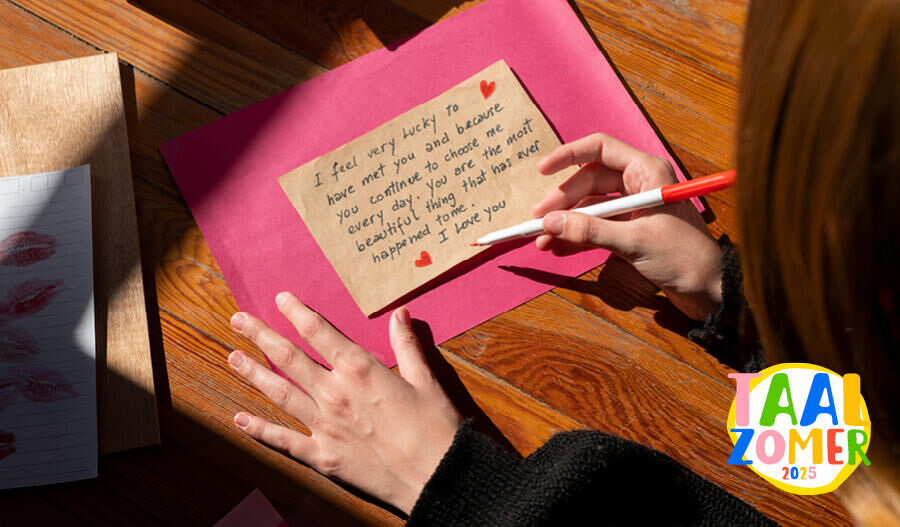 I feel very lucky to
have met you and because
you continue to choose me
every day. you are the most
beautiful thing that has ever
happened to me.
I love you
TAAL
ZOMER
2025